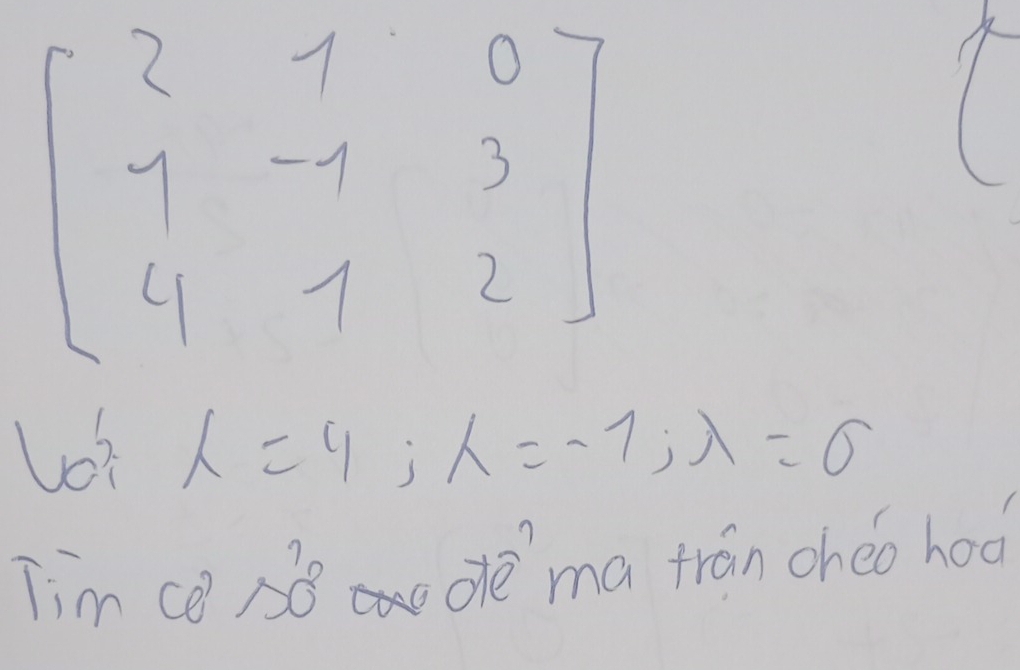 2 1 0
1 -1 3
4 1 2
Với λ = 4 ; λ = -1 ; λ = 0
Tìm cơ sở để ma trận chéo hoá